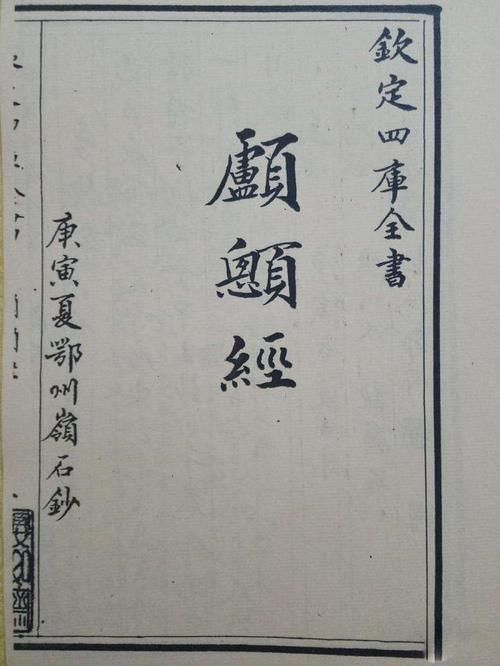 欽定四庫全書
顱顖經
庚寅夏鄂州嶺石鈔